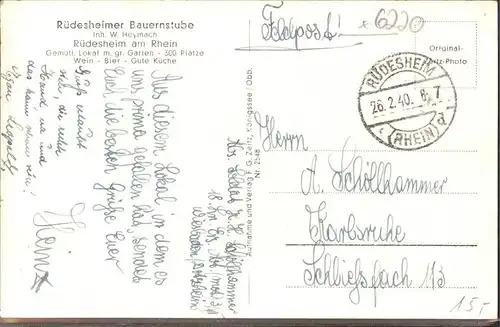 Rüdesheimer Bauernstube
Inh. W. Heymach
Rüdesheim am Rhein
Gemütl. Lokal m. gr. Garten - 300 Plätze
Wein - Bier - Gute Küche
Feldpost!
x6220
Original-
-Photo
RÜDESHEIM
26.2.40. 6-7
c (RHEIN) d
Aus diesem Lokal in dem es
uns prima gefallen hat, sendet
Euch die besten Grüße Euer
Heinz
Gruß
die
Hand, na und
das kann
Aufnahme und Verlag F. G. Zeitz, Königssee / Obb.
Nr. 2548
Abs. Soldat
Schöllhammer
Wiesbaden
Herrn
A. Schöllhammer
Karlsruhe
Schließfach 113
15,-